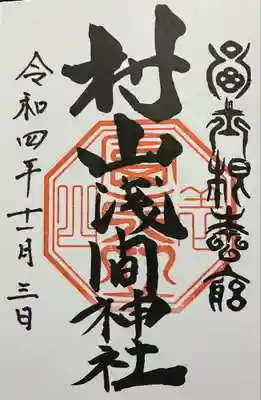 富士根本宮
村山浅間神社
令和四年十一月三日